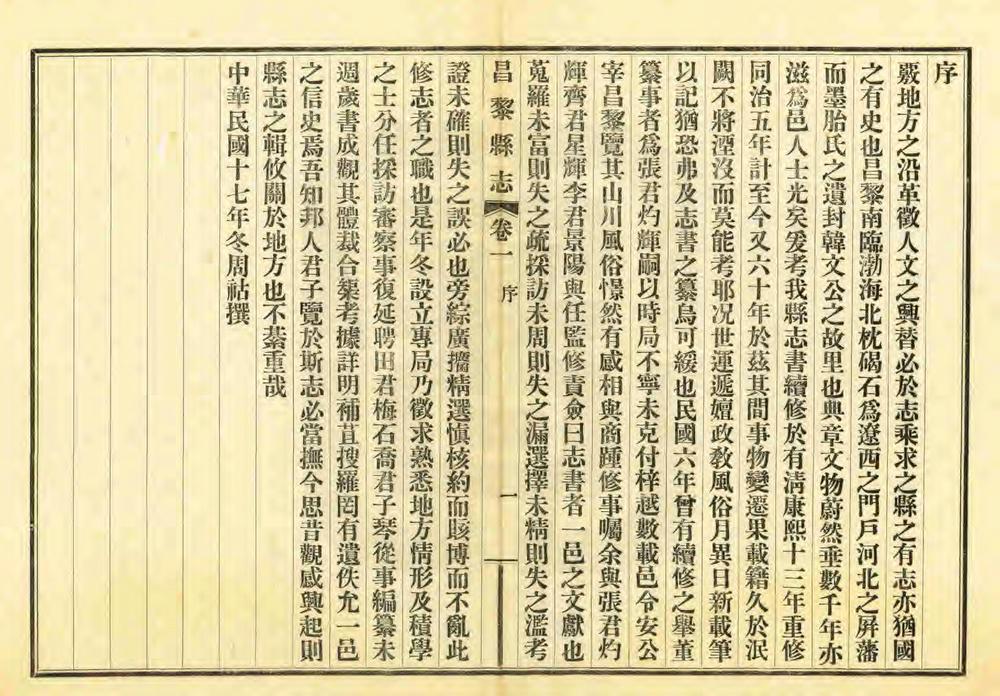 序
覈地方之沿革徵人文之興替必於志乘求之縣之有志亦猶國
之有史也昌黎南臨渤海北枕碣石爲遼西之門戶河北之屏藩
而墨胎氏之遺封韓文公之故里也典章文物蔚然垂數千年亦
滋爲邑人士光矣爰考我縣志書續修於有淸康熙十三年重修
同治五年計至今又六十年於茲其間事物變遷果載籍久於泯
闕不將湮沒而莫能考耶況世運遞嬗政敎風俗月異日新載筆
以記猶恐弗及志書之纂烏可緩也民國六年曾有續修之舉董
纂事者爲張君灼輝嗣以時局不寧未克付梓越數載邑令安公
宰昌黎覽其山川風俗憬然有感相與商踵修事囑余與張君灼
輝齊君星輝李君景陽與任監修責僉曰志書者一邑之文獻也
蒐羅未富則失之疏採訪未周則失之漏選擇未精則失之濫考
昌黎縣志 卷一 序 一
證未確則失之誤必也旁綜廣攟精選愼核約而賅博而不亂此
修志者之職也是年冬設立專局乃徵求熟悉地方情形及積學
之士分任採訪審察事復延聘田君梅石喬君子琴從事編纂未
週歲書成觀其體裁合榘考據詳明補苴搜羅罔有遺佚允一邑
之信史焉吾知邦人君子覽於斯志必當撫今思昔觀感興起則
縣志之輯攸關於地方也不綦重哉
中華民國十七年冬周祜撰